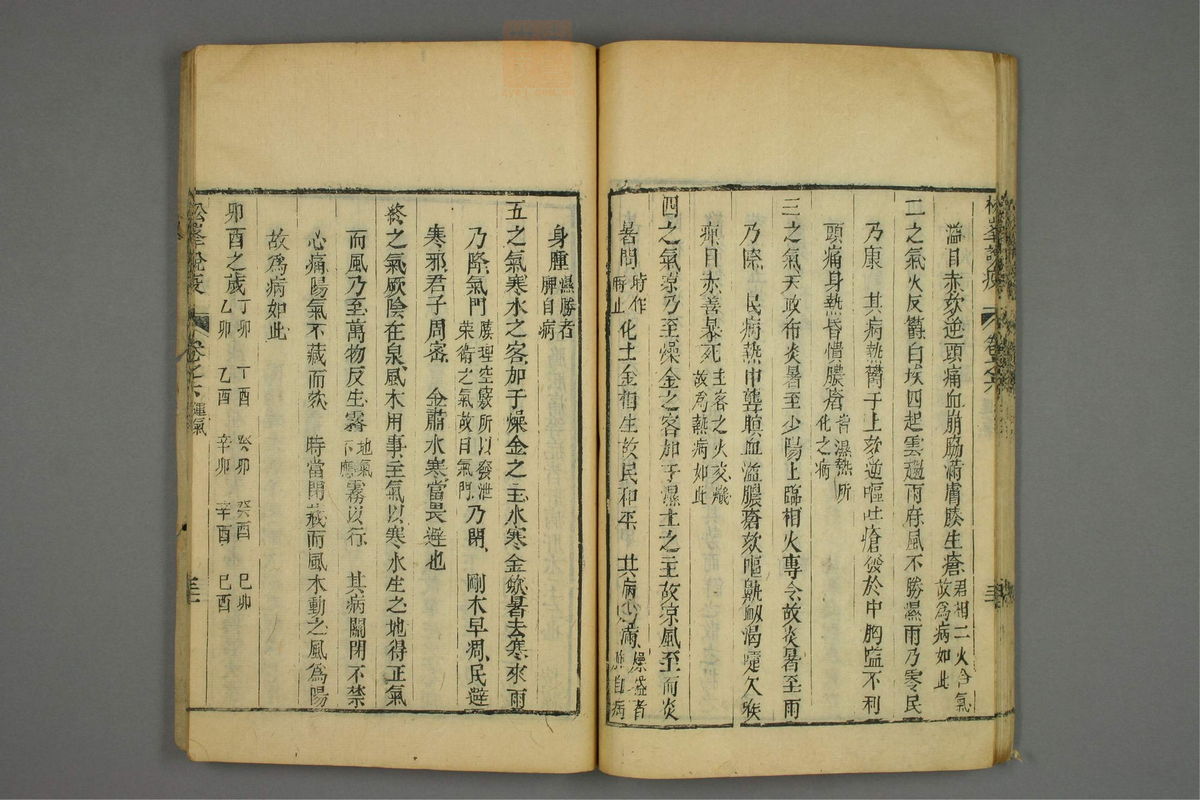 溢目赤欬逆頭痛血崩脇滿膚腠生瘡君相二火合氣故爲病如此
二之氣火反鬱白埃四起雲趨雨府風不勝濕雨乃零民
乃康 其病熱鬱于上欬逆嘔吐瘡發於中胸嗌不利
頭痛身熱昏憒膿瘡皆濕熱所化之病
三之氣天政布炎暑至少陽上臨相火專令故炎暑至雨
乃際 民病熱中聾瞑血溢膿瘡欬嘔鼽衄渴嚏欠喉
痺目赤善暴死主客之火交熾故爲熱病如此
四之氣凉乃至燥金之客加于濕土之主故凉風至而炎
暑間時作時止化土金相生故民和平 其病滿燥盛者肺自病
身腫濕勝者脾自病
五之氣寒水之客加于燥金之主水寒金歛暑去寒來雨
乃降氣門腠理空竅所以發泄榮衛之氣故曰氣門乃閉 剛木早凋民避
寒邪君子周密 金肅水寒當畏避也
終之氣厥陰在泉風木用事主氣以寒水生之地得正氣
而風乃至萬物反生霧地氣不應霧以行 其病關閉不禁
心痛陽氣不藏而欬 時當閉藏而風木動之風爲陽
故爲病如此
卯酉之歲丁卯 丁酉 癸卯 癸酉 己卯
乙卯 乙酉 辛卯 辛酉 己酉
松峯說疫
卷之六
運氣